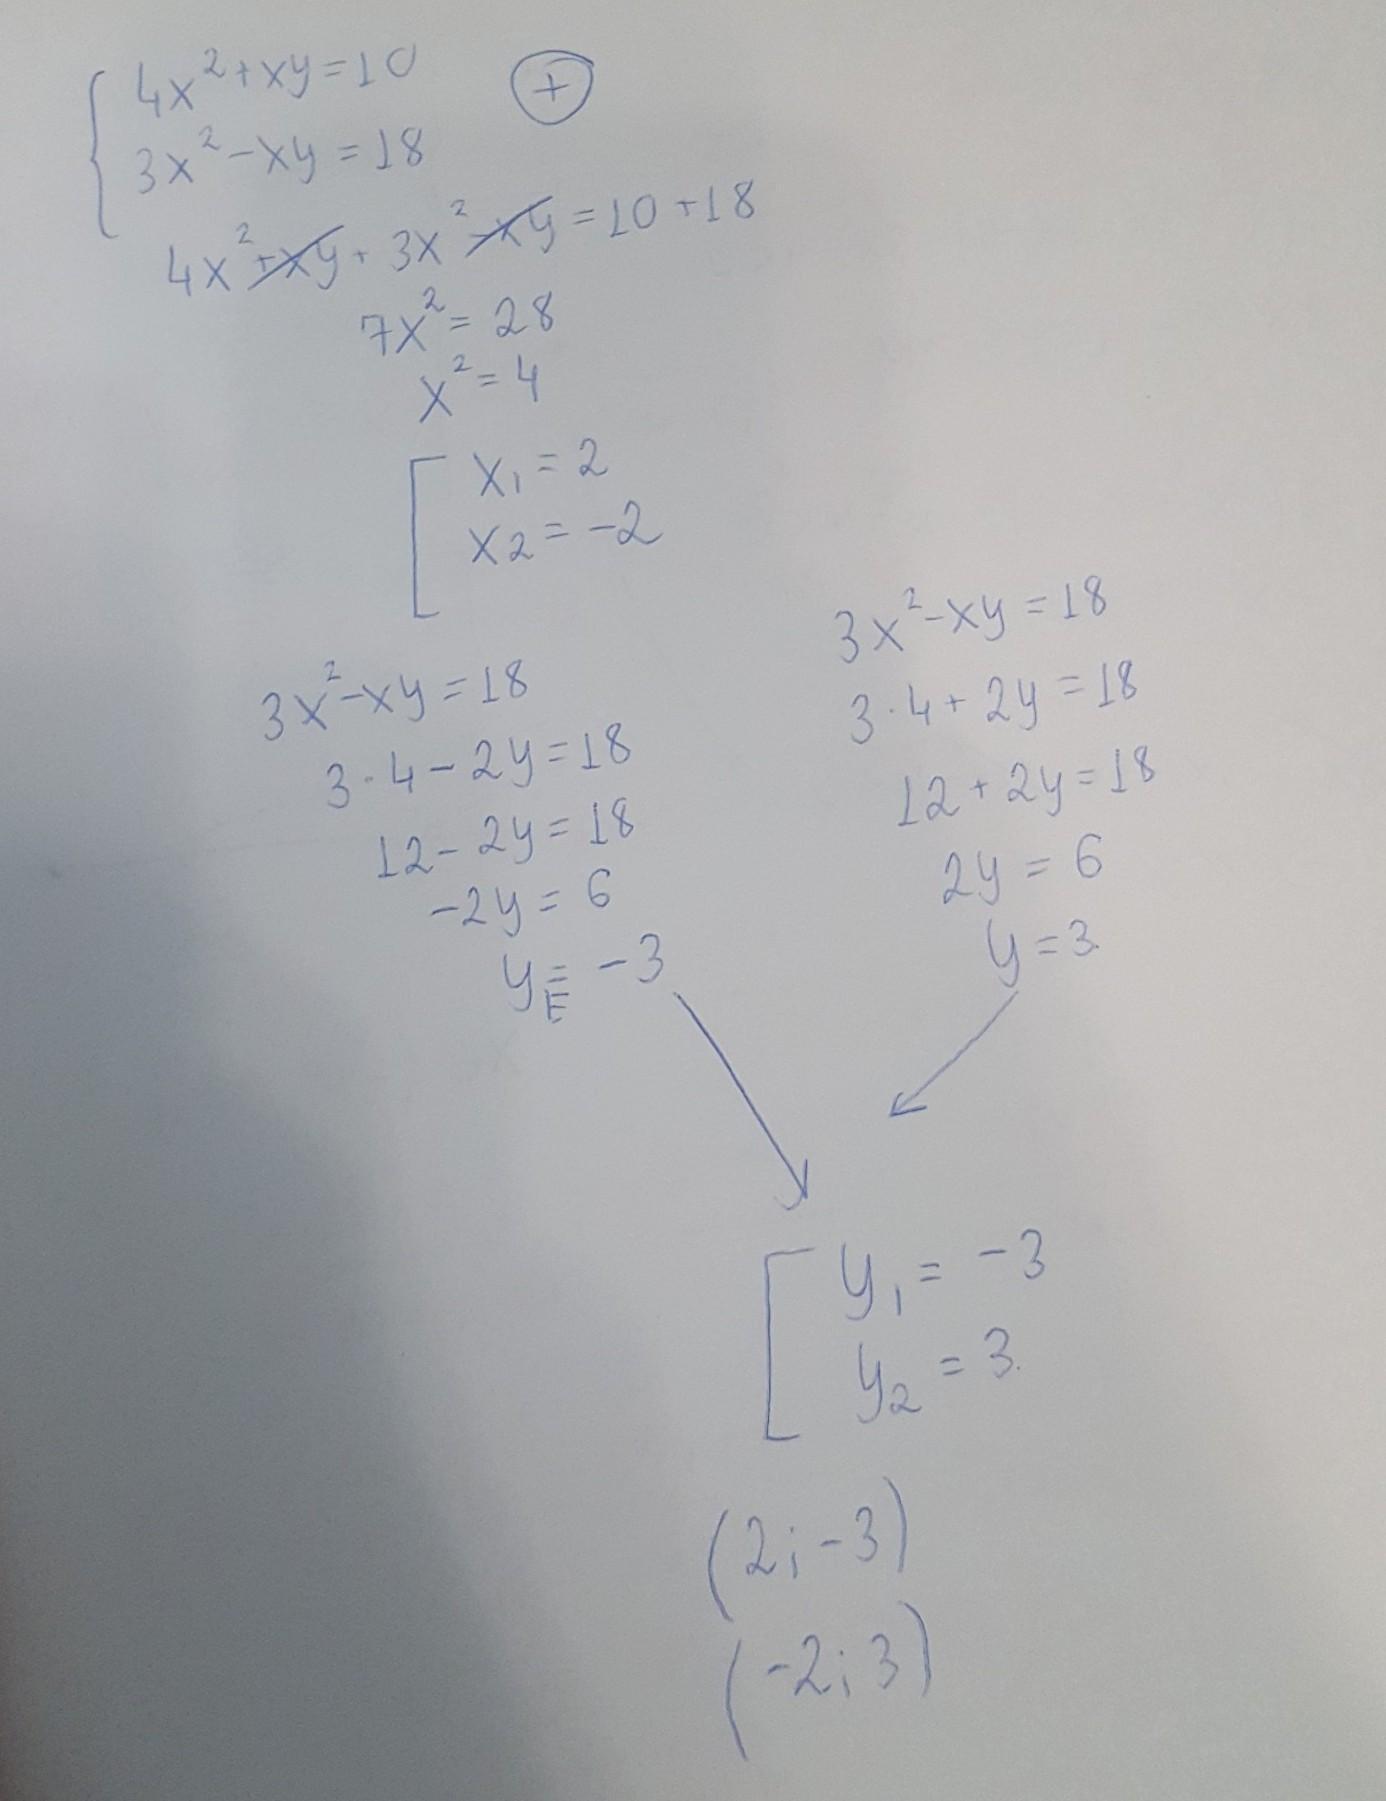 4x²+xy=10 +
3x²-xy=18
4x²+xy+3x²-xy=10+18
7x²=28
x²=4
x₁=2
x2=-2
3x²-xy=18
3·4-2y=18
12-2y=18
-2y=6
y=-3
3x²-xy=18
3·4+2y=18
12+2y=18
2y=6
y=3.
y₁=-3
y₂=3.
(2;-3)
(-2;3)